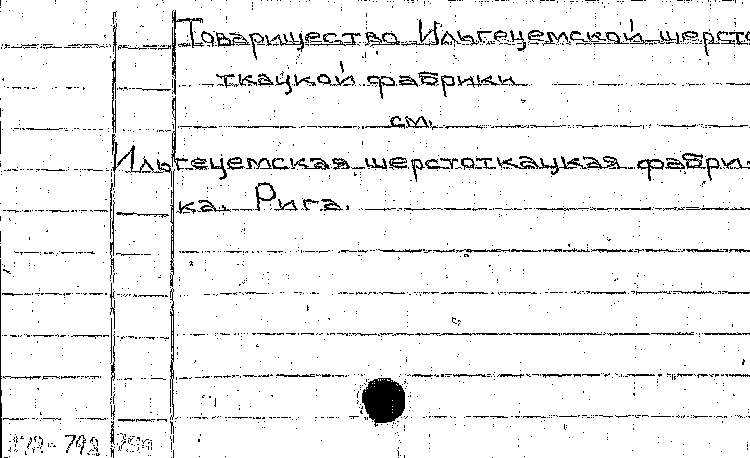 Товарищество Ильгецемской шерсто
ткацкой фабрики
см.
Ильгецемская шерстоткацкая фабри-
ка. Рига.